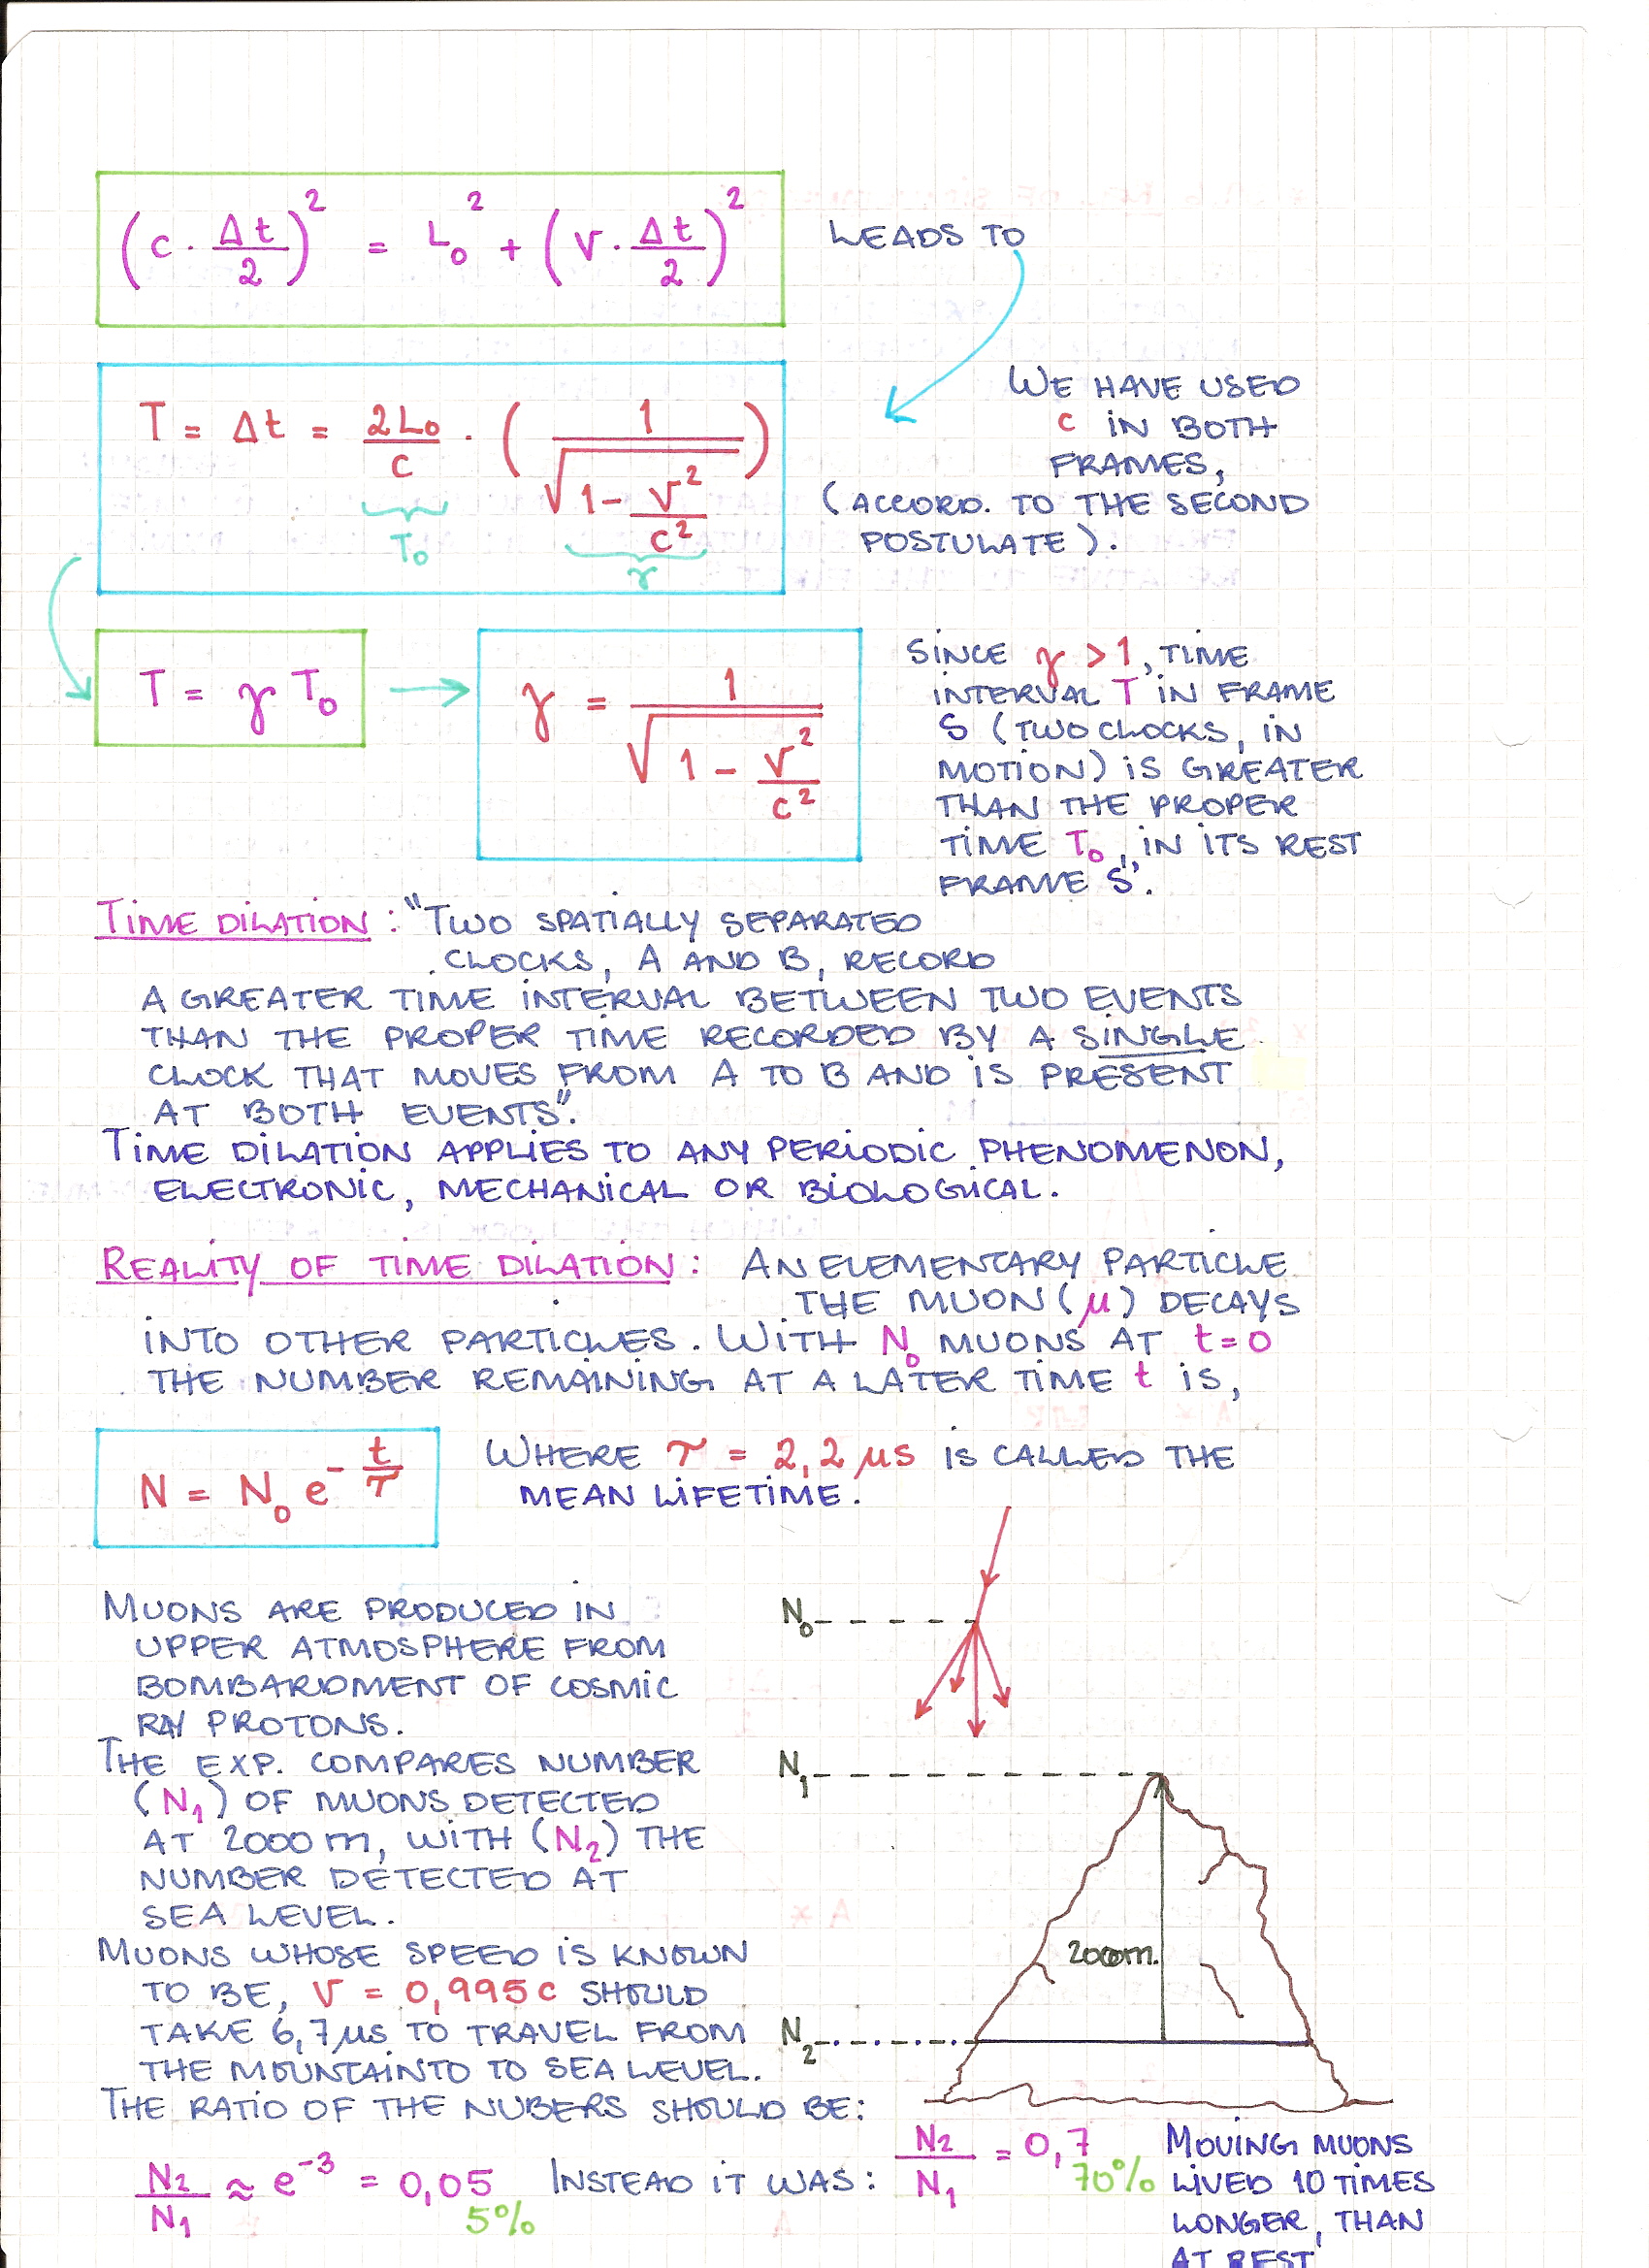 (c · Δt/2)² = L₀² + (v · Δt/2)²
LEADS TO
T = Δt = 2L₀/c · (1/√(1 - v²/c²))
T₀
γ
WE HAVE USED
c IN BOTH
FRAMES,
(ACCORD. TO THE SECOND
POSTULATE).
T = γ T₀ → γ = 1/√(1 - v²/c²)
SINCE γ > 1, TIME
INTERVAL T IN FRAME
S (TWO CLOCKS, IN
MOTION) IS GREATER
THAN THE PROPER
TIME T₀, IN ITS REST
FRAME S'.
TIME DILATION: "TWO SPATIALLY SEPARATED
CLOCKS, A AND B, RECORD
A GREATER TIME INTERVAL BETWEEN TWO EVENTS
THAN THE PROPER TIME RECORDED BY A SINGLE
CLOCK THAT MOVES FROM A TO B AND IS PRESENT
AT BOTH EVENTS".
TIME DILATION APPLIES TO ANY PERIODIC PHENOMENON,
ELECTRONIC, MECHANICAL OR BIOLOGICAL.
REALITY OF TIME DILATION: AN ELEMENTARY PARTICLE
THE MUON (μ) DECAYS
INTO OTHER PARTICLES. WITH N₀ MUONS AT t=0
THE NUMBER REMAINING AT A LATER TIME t IS,
N = N₀ e^(-t/τ)
WHERE τ = 2,2 μs IS CALLED THE
MEAN LIFETIME.
MUONS ARE PRODUCED IN
UPPER ATMOSPHERE FROM
BOMBARDMENT OF COSMIC
RAY PROTONS.
THE EXP. COMPARES NUMBER
(N₁) OF MUONS DETECTED
AT 2000 m, WITH (N₂) THE
NUMBER DETECTED AT
SEA LEVEL.
MUONS WHOSE SPEED IS KNOWN
TO BE, v = 0,995c SHOULD
TAKE 6,7 μs TO TRAVEL FROM
THE MOUNTAINTO TO SEA LEVEL.
N₀
N₁
2000m.
N₂
THE RATIO OF THE NUBERS SHOULD BE:
N₂/N₁ ≈ e⁻³ = 0,05
5%
INSTEAD IT WAS: N₂/N₁ = 0,7
70%
MOVING MUONS
LIVED 10 TIMES
LONGER, THAN
AT REST